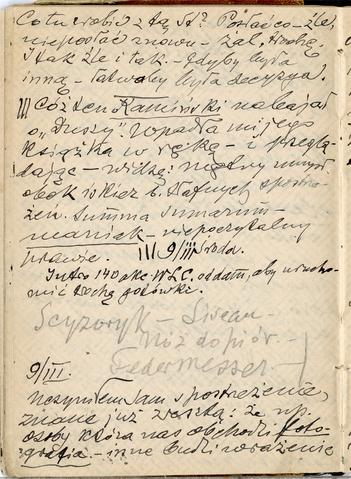 Co tu robić z tą St? Posłać co – źle,
nieposłać znowu – żal. Trochę.
I tak źle i tak. – Gdyby była
inną – łatwą by była decyzya.
III Cóż ten Kamiński nabajał
o „Duszy". Wpadła mi jego
książka w rękę – i przeglą-
dając – widzę: mętny umysł
obok iskier b. trafnych spostrze-
żeń. Summa summarum –
maniak – niepoczytalny
prawie. III 9/III Środa.
Jutro 140 akc WLC. oddam, aby urucho-
mić trochę gotówki.
Scyzoryk –
Nóż do piór –
Federmesser
9/III.
Uczyniłem sam spostrzeżenie,
znane już zresztą: że np.
osoby która nas obchodzi foto-
grafia – inne budzi wrażenie